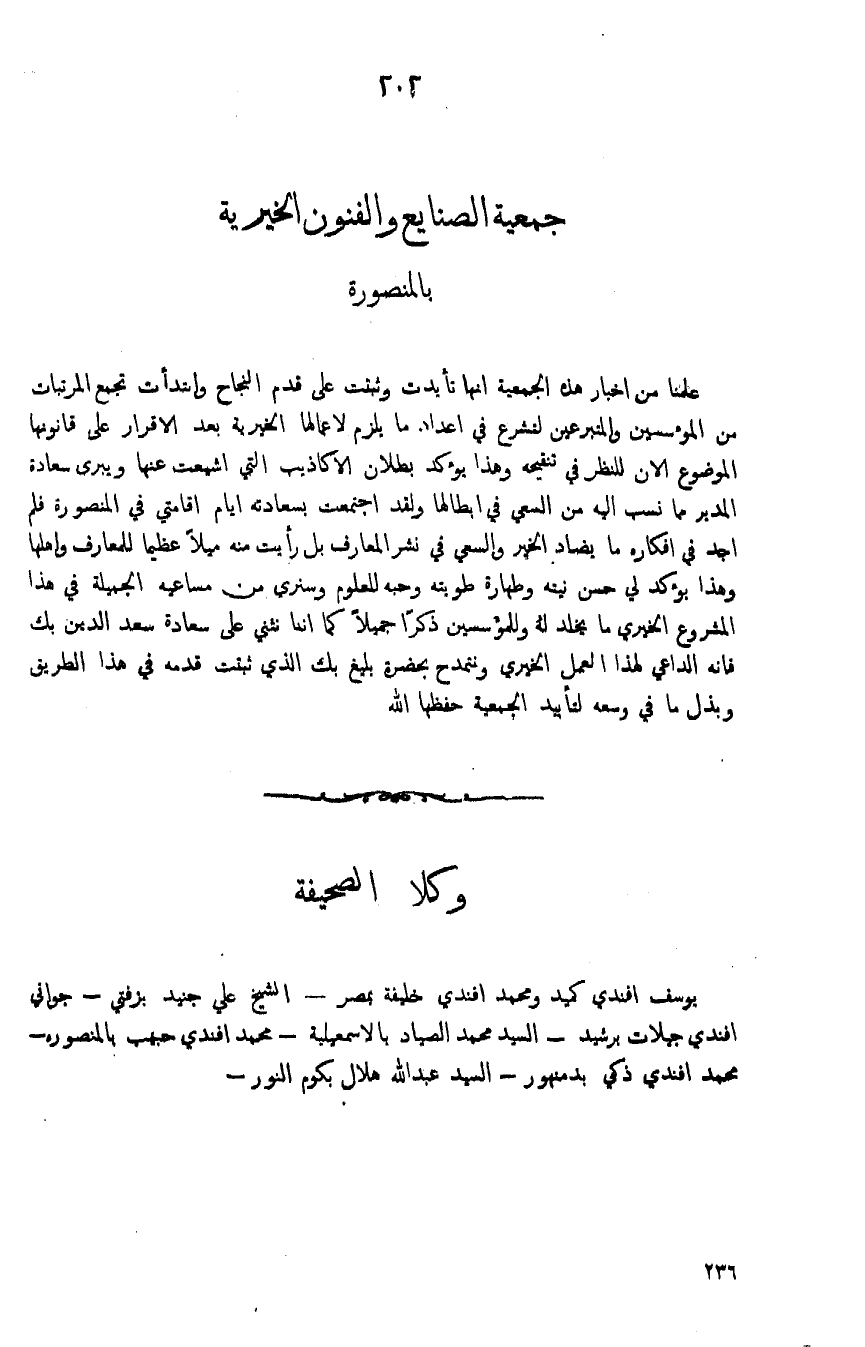 ٢٠٢
جمعية الصنايع والفنون الخيرية
بالمنصورة
علمنا من اخبار هذه الجمعية انها تأيدت وثبتت على قدم النجاح وابتدأت تجمع المرتبات
من المؤسسين والمتبرعين لتشرع في اعداد ما يلزم لاعمالها الخيرية بعد الاقرار على قانونها
الموضوع الان للنظر في تنقيحه وهذا يوءكد بطلان الاكاذيب التي اشيعت عنها ويبرى سعادة
المدير مما نسب اليه من السعي في ابطالها ولقد اجتمعت بسعادته ايام اقامتي في المنصورة فلم
اجد في افكاره ما يضاد الخير والسعي في نشر المعارف بل رأيت منه ميلاً عظيما للمعارف واهلها
وهذا يوءكد لي حسن نيته وطهارة طويته وحبه للعلوم وسنري من مساعيه الجميلة في هذا
المشروع الخيري ما يخلد لهُ وللمؤسسين ذكرًا جميلاً كما اننا نثني على سعادة سعد الدين بك
فانه الداعي لهذا العمل الخيري ونتمدح بحضرة بليغ بك الذي ثبتت قدمه في هذا الطريق
وبذل ما في وسعه لتأييد الجمعية حفظها الله
وكلا الصحيفة
يوسف افندي كميد ومحمد افندي خليفة بمصر — الشيخ علي جنيد بزفتي — جواني
افندي جيلات برشيد — السيد محمد الصياد بالاسمعيلية — محمد افندي حبيب بالمنصوره—
محمد افندي ذكي بدمنهور — السيد عبدالله هلال بكوم النور —
٢٣٦